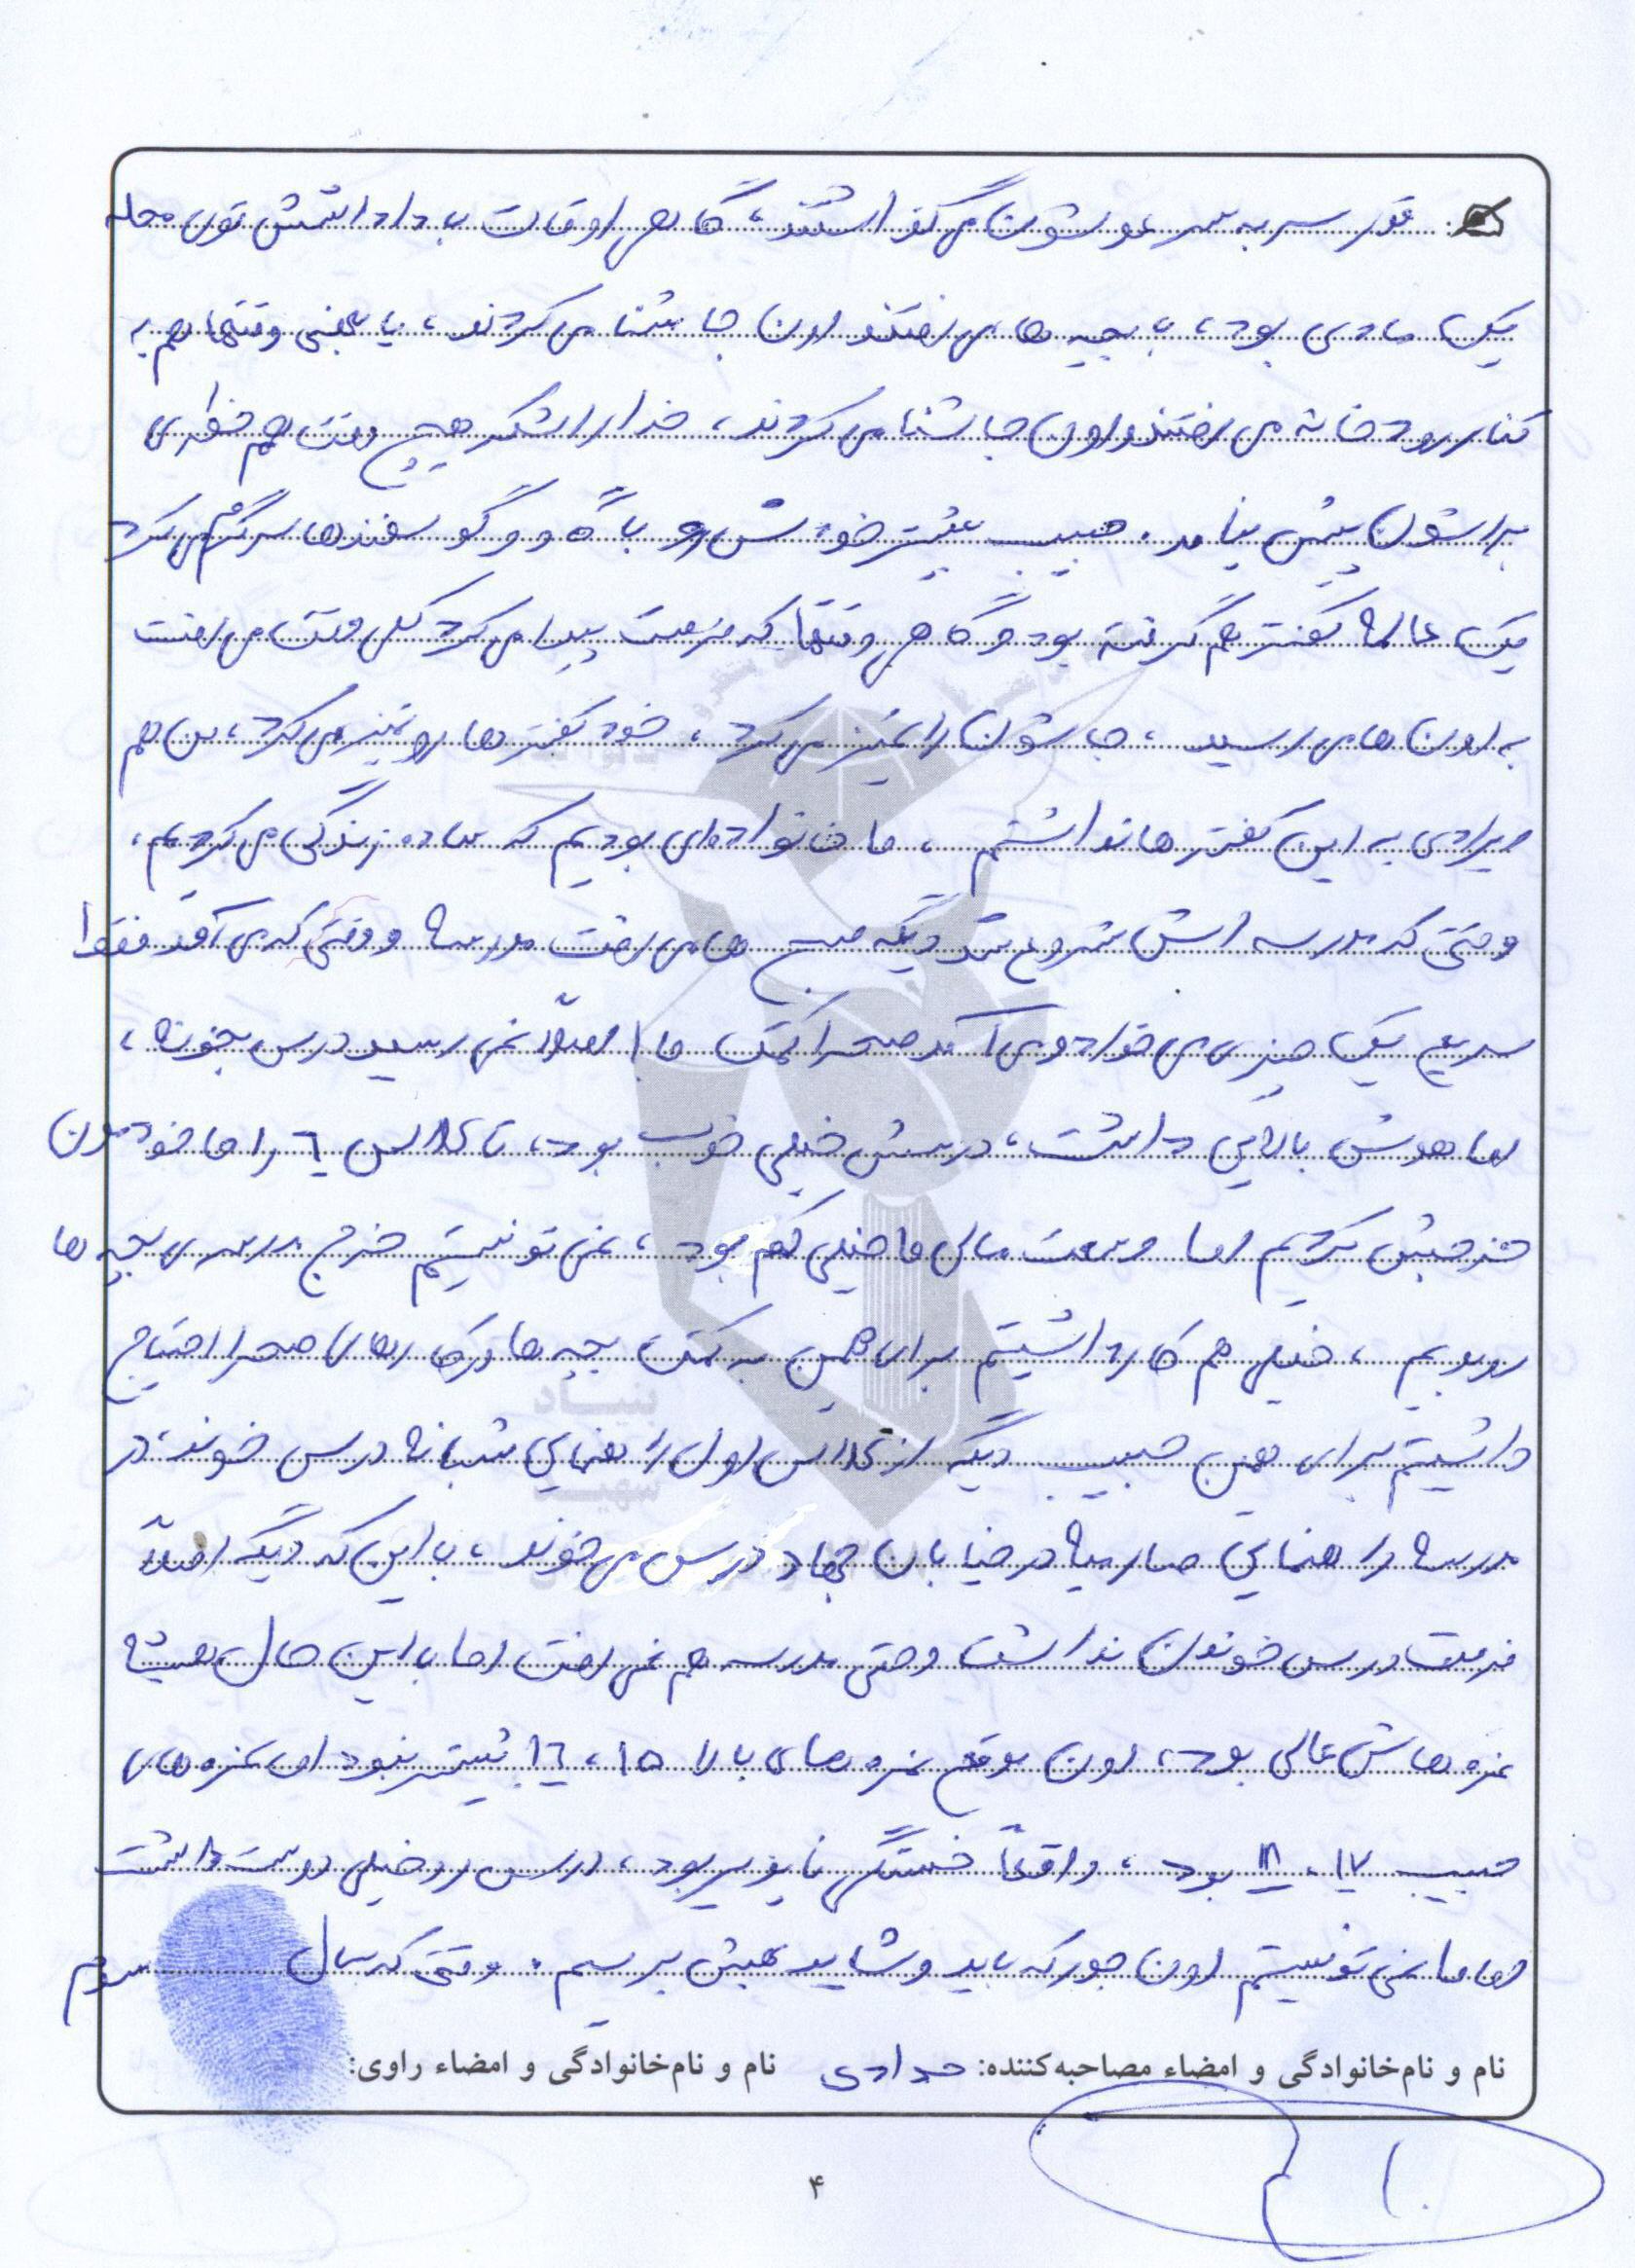 قدر سر به سر عموشون می گذاشتند، گاهی اوقات با داداشش توی محله
یک مادی بود، با بچه ها می رفتند اون جا شنا می کردند، یا بعضی وقتها هم به
کنار رودخانه می رفتند و اون جا شنا می کردند، خدا را شکر هیچ وقت هم خطری
براشون پیش نیامد. حبیب بیشتر خودش رو با گاو و گوسفندها سرگرم می کرد
یک عالمه کفتر هم گرفته بود و گاهی وقتها که فرصت پیدا می کرد کلی وقت می رفت
به اون ها می رسید، جاشون را تمیز می کرد، خود کفترها رو تمیز می کرد، من هم
ایرادی به این کفترها نداشتم، ما خانواده ای بودیم که ساده زندگی می کردیم،
وقتی که مدرسه اش شروع شد دیگه صبح ها می رفت مدرسه و وقتی که می آمد فقط
سریع یک چیزی می خورد و می آمد صحرا کمک ما اصلاً نمی رسید درس بخونه،
اما هوش بالایی داشت، درسش خیلی خوب بود، تا کلاس ٦ را ما خودمون
خرجش کردیم اما وسعت مالی ما خیلی کم بود، نمی تونستیم خرج مدرسه ی بچه ها
رو بدیم، خیلی هم کار داشتیم برای همین به کمک بچه ها در کارهای صحرا احتیاج
داشتیم برای همین حبیب دیگه از کلاس اول راهنمایی شبانه درس خوند، در
مدرسه راهنمایی صارمیه در خیابان جهاد درس می خوند، با این که دیگه اصلاً
فرصت درس خوندن نداشت و حتی مدرسه هم نمی رفت اما با این حال همیشه
نمره هاش عالی بود، اون موقع نمره های بالا ١٥، ١٦ بیشتر نبود اما نمره های
حبیب ١٧، ١٨ بود، واقعاً خستگی ناپذیر بود، درس رو خیلی دوست داشت
اما ما نمی تونستیم اون جور که باید و شاید بهش برسیم. وقتی که سال سوم
نام و نام‌خانوادگی و امضاء مصاحبه‌کننده: حدادی نام و نام‌خانوادگی و امضاء راوی:
بنیاد
شهید
۴